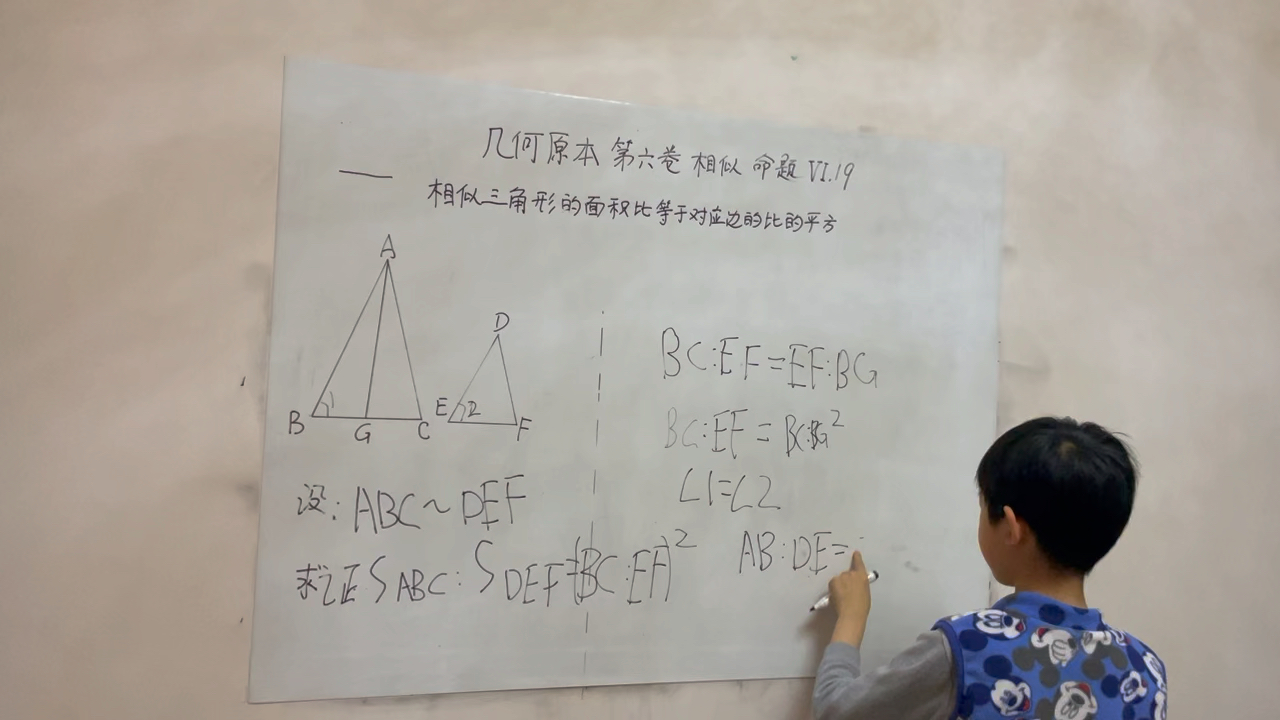 几何原本 第六卷 相似 命题 VI.19
相似三角形的面积比等于对应边的比的平方
A
B 1 G C
D
E 2 F
设: ABC ~ DEF
求证 S ABC : S DEF = (BC:EF)²
BC:EF=EF:BG
BC:EF = BC:BG²
∠1=∠2
AB:DE=